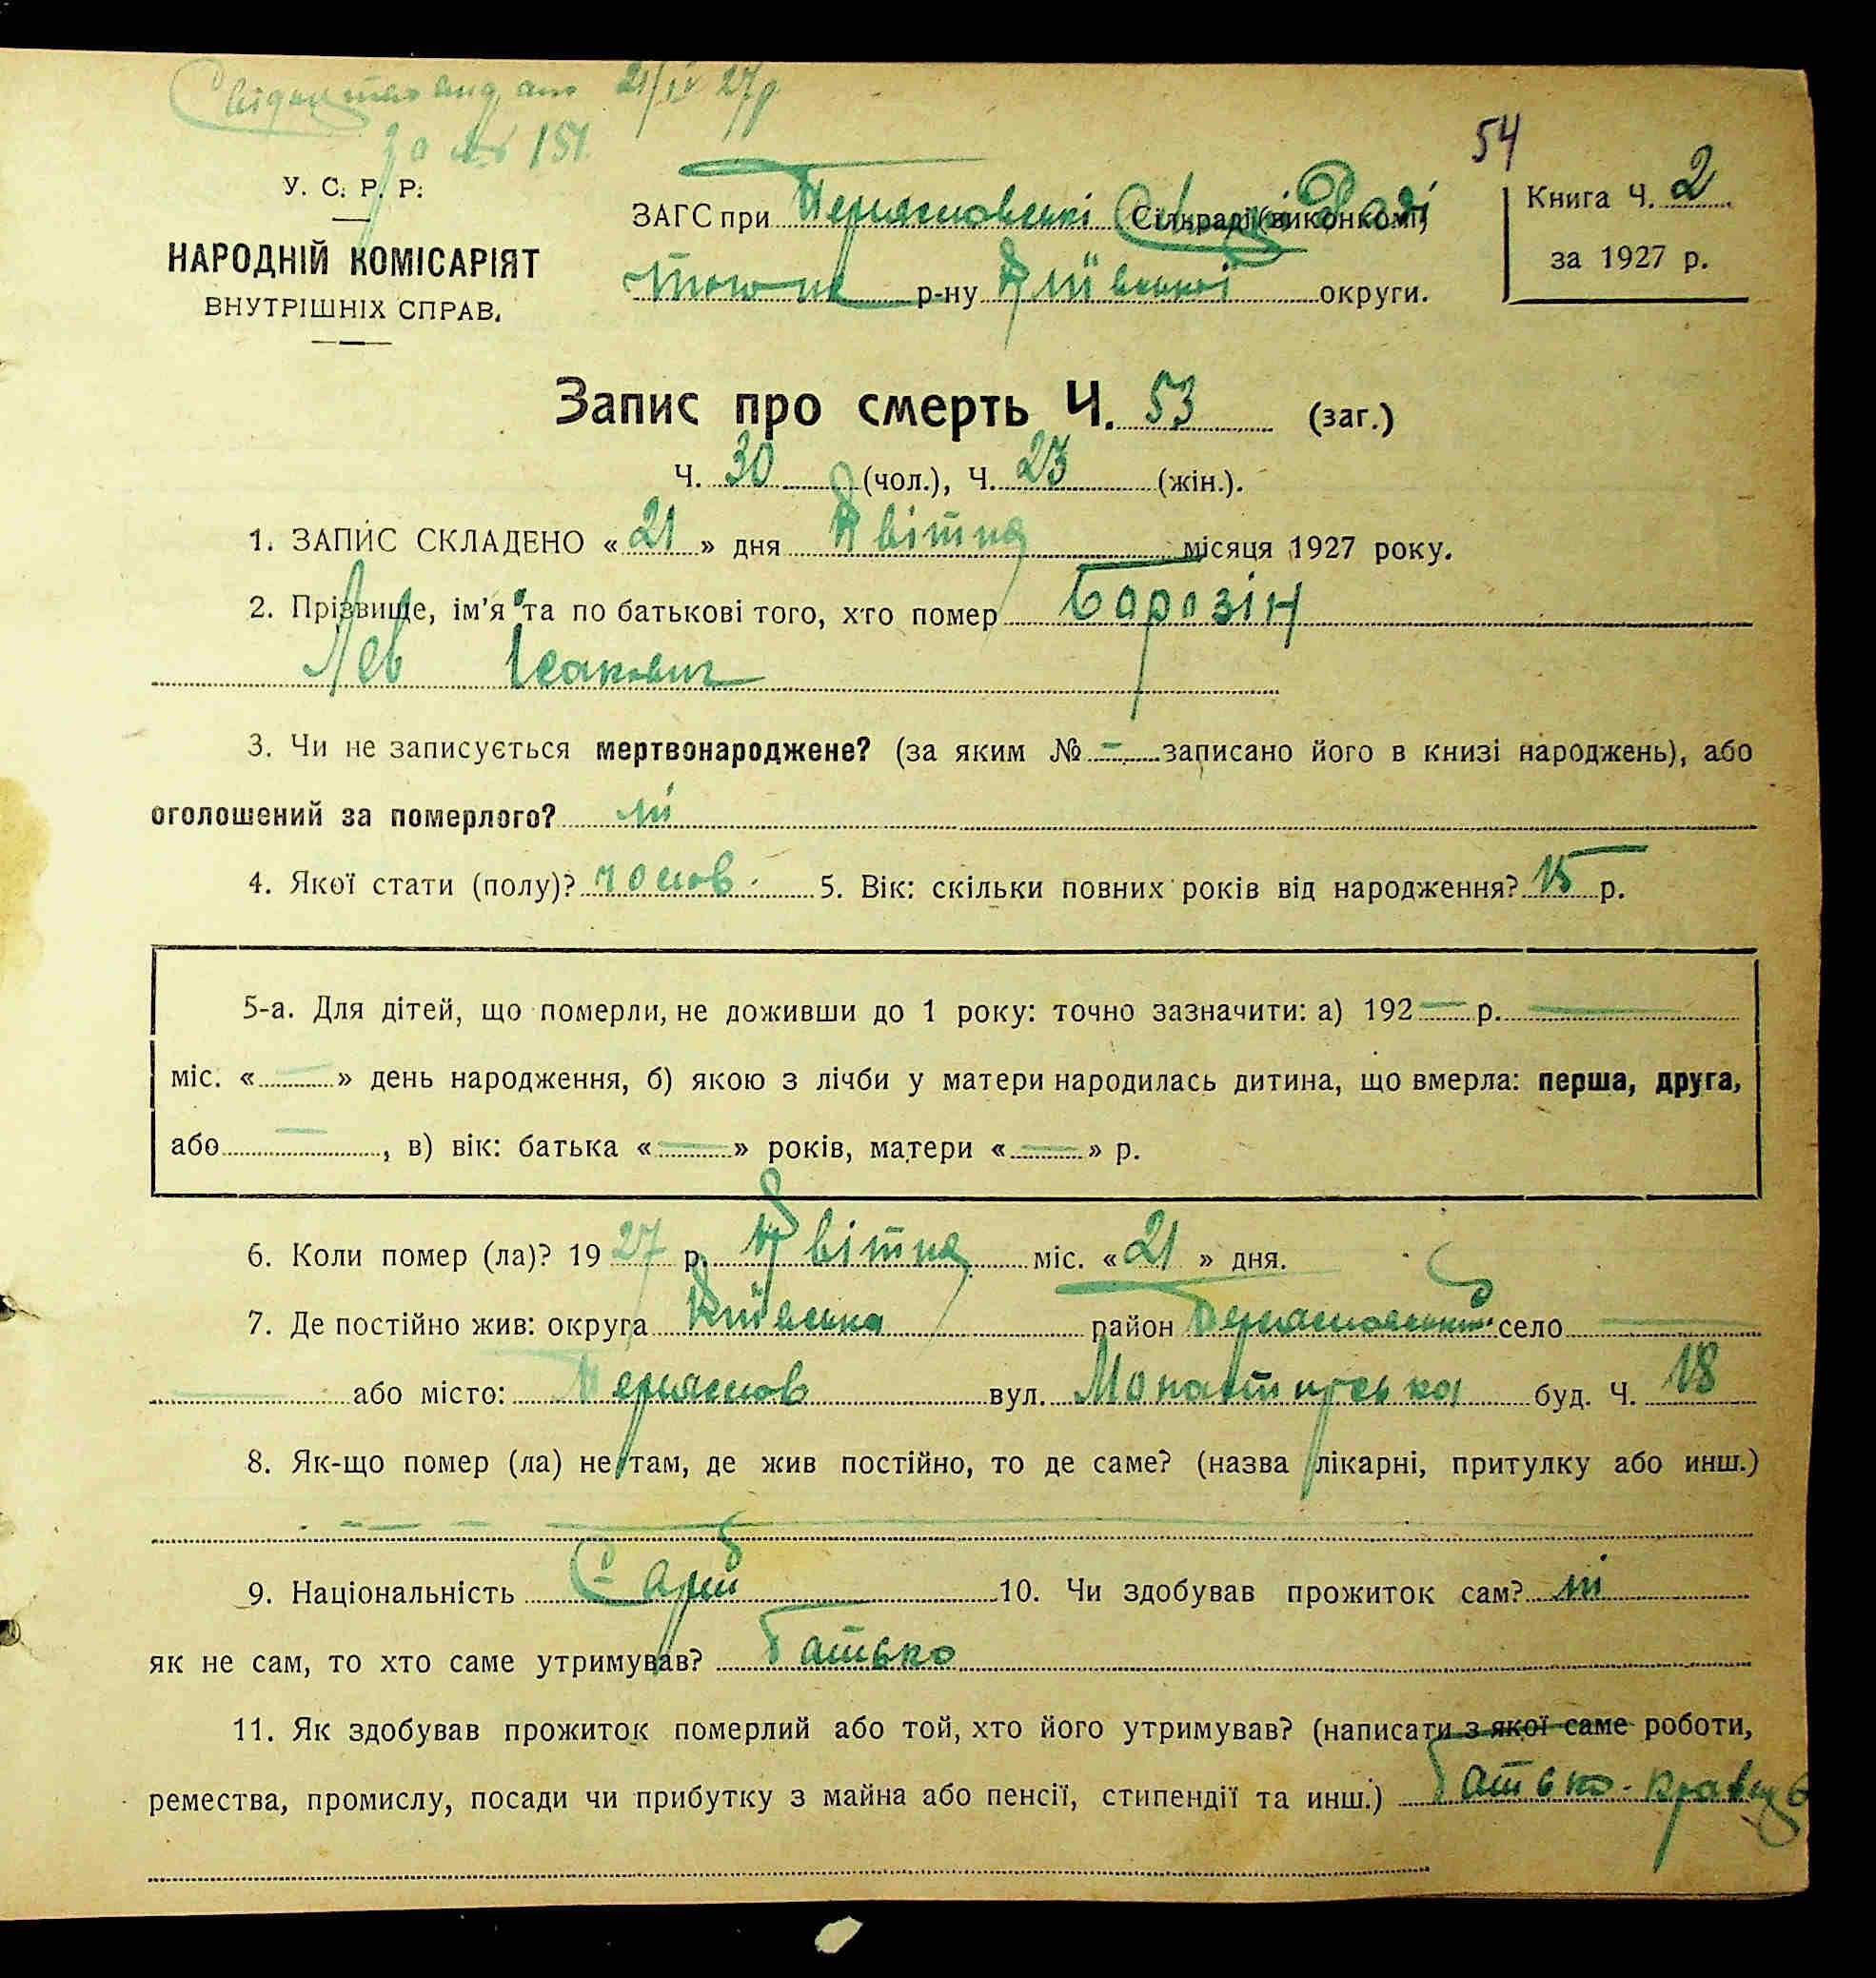 Свідоцтво видано 21/IV 27р
за № 151.
54
У. С. Р. Р.
НАРОДНІЙ КОМІСАРІЯТ
ВНУТРІШНІХ СПРАВ.
ЗАГС при Переяславські Сільраді (виконкомі) Раді
р-ну Київської округи.
Книга Ч. 2
за 1927 р.
Запис про смерть Ч. 53 (заг.)
Ч. 30 (чол.), Ч. 23 (жін.).
1. ЗАПИС СКЛАДЕНО « 21 » дня Квітня місяця 1927 року.
2. Прізвище, ім'я та по батькові того, хто помер Борозін
Лев Ісакович
3. Чи не записується мертвонароджене? (за яким № – записано його в книзі народжень), або
оголошений за померлого? ні
4. Якої стати (полу)? чолов. 5. Вік: скільки повних років від народження? 15 р.
5-а. Для дітей, що померли, не доживши до 1 року: точно зазначити: а) 192 — р. —
міс. « — » день народження, б) якою з лічби у матери народилась дитина, що вмерла: перша, друга,
або — , в) вік: батька « — » років, матери « — » р.
6. Коли помер (ла)? 19 27 р. Квітня міс. « 21 » дня.
7. Де постійно жив: округа Київська район Переяславський село —
— або місто: Переяслов вул. Монастирська буд. Ч. 18
8. Як-що помер (ла) не там, де жив постійно, то де саме? (назва лікарні, притулку або инш.)
— — — —
9. Національність Єврей 10. Чи здобував прожиток сам? ні
як не сам, то хто саме утримував? Батько
11. Як здобував прожиток померлий або той, хто його утримував? (написати з якої саме роботи,
ремества, промислу, посади чи прибутку з майна або пенсії, стипендії та инш.) Батько - кравець